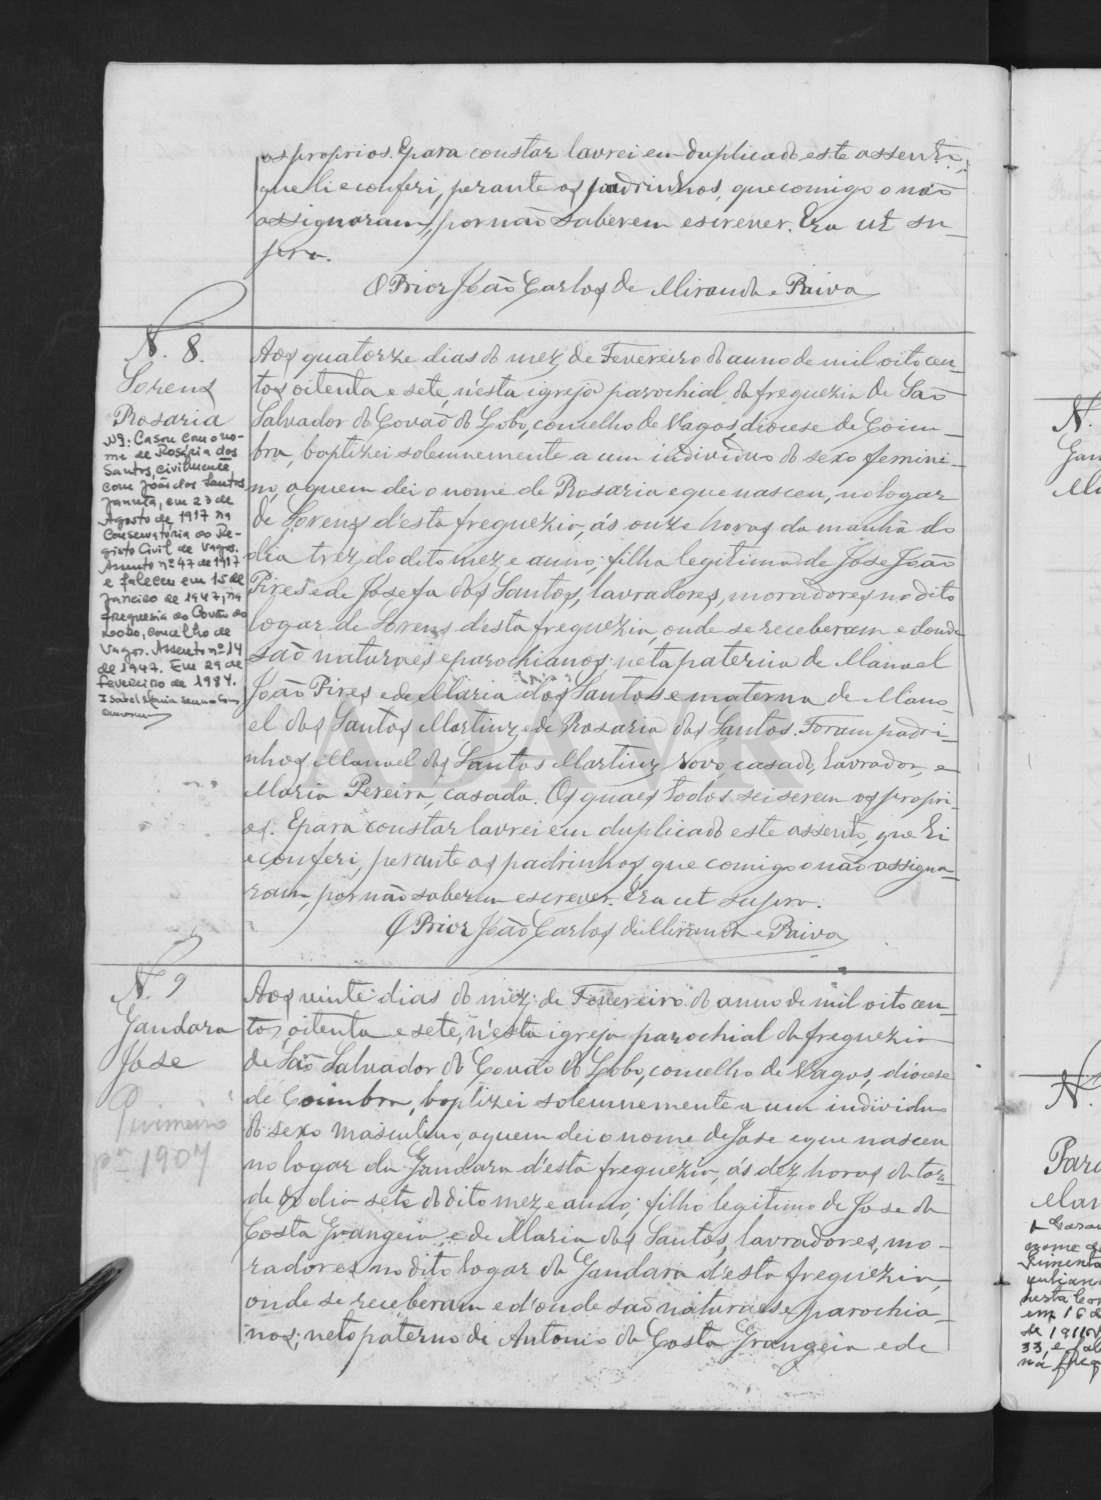 os proprios. E para constar lavrei em duplicado este assento,
que li e conferi, perante os padrinhos, que comigo o não
assignaram, por não saberem escrever. Era ut su-
pra.
O Prior João Carlos de Miranda e Paiva
N. 8.
Lorenz
Rosaria
N3: Casou com o no-
me de Rosária dos
Santos, civilmente
com João dos Santos
Janeta, em 23 de
Agosto de 1917 na
Conservatória do Re-
gisto Civil de Vagos.
Assento nº 47 de 1917
e faleceu em 15 de
Janeiro de 1947, na
freguesia do Covão do
Lobo, concelho de
Vagos. Assento nº 14
de 1947. Em 29 de
fevereiro de 1984.
Aos quatorze dias do mez de Fevereiro do anno de mil oito cen-
tos oitenta e sete, n'esta igreja parochial da freguezia de São
Salvador do Covão do Lobo, concelho de Vagos, diocese de Coim-
bra, baptizei solemnemente a um individuo do sexo femini-
no, a quem dei o nome de Rosaria e que nasceu, no logar
de Lorenz d'esta freguezia, ás onze horas da manhã do
dia trez do dito mez e anno, filha legitima de José João
Pires e de Josefa dos Santos, lavradores, moradores no dito
logar de Lorenz d'esta freguezia, onde se receberam e d'onde
são naturaes e parochianos; neta paterna de Manoel
João Pires e de Maria dos Santos e materna de Mano-
el dos Santos Martinz e de Rosaria dos Santos. Foram padri-
nhos Manoel dos Santos Martinz Novo, casado, lavrador, e
Maria Pereira, casada. Os quaes todos sei serem os propri-
os. E para constar lavrei em duplicado este assento, que li
e conferi, perante os padrinhos, que comigo o não assigna-
ram, por não saberem escrever. Era ut supra.
O Prior João Carlos de Miranda e Paiva
ADAVR
N. 9
Gandara
Jose
Pr 1907
Aos vinte dias do mez de Fevereiro do anno de mil oito cen-
tos oitenta e sete, n'esta igreja parochial da freguezia
de São Salvador do Covão do Lobo, concelho de Vagos, diocese
de Coimbra, baptizei solemnemente a um individuo
do sexo masculino, a quem dei o nome de Jose e que nasceu
no logar da Gandara d'esta freguezia, ás dez horas da tar-
de do dia sete do dito mez e anno; filho legitimo de Jose da
Costa Grangeia e de Maria dos Santos, lavradores, mo-
radores no dito logar da Gandara d'esta freguezia,
onde se receberam e d'onde são naturaes e parochia-
nos; neto paterno de Antonio da Costa Grangeia e de
N.
Gan
Ma
N.
Para
Man